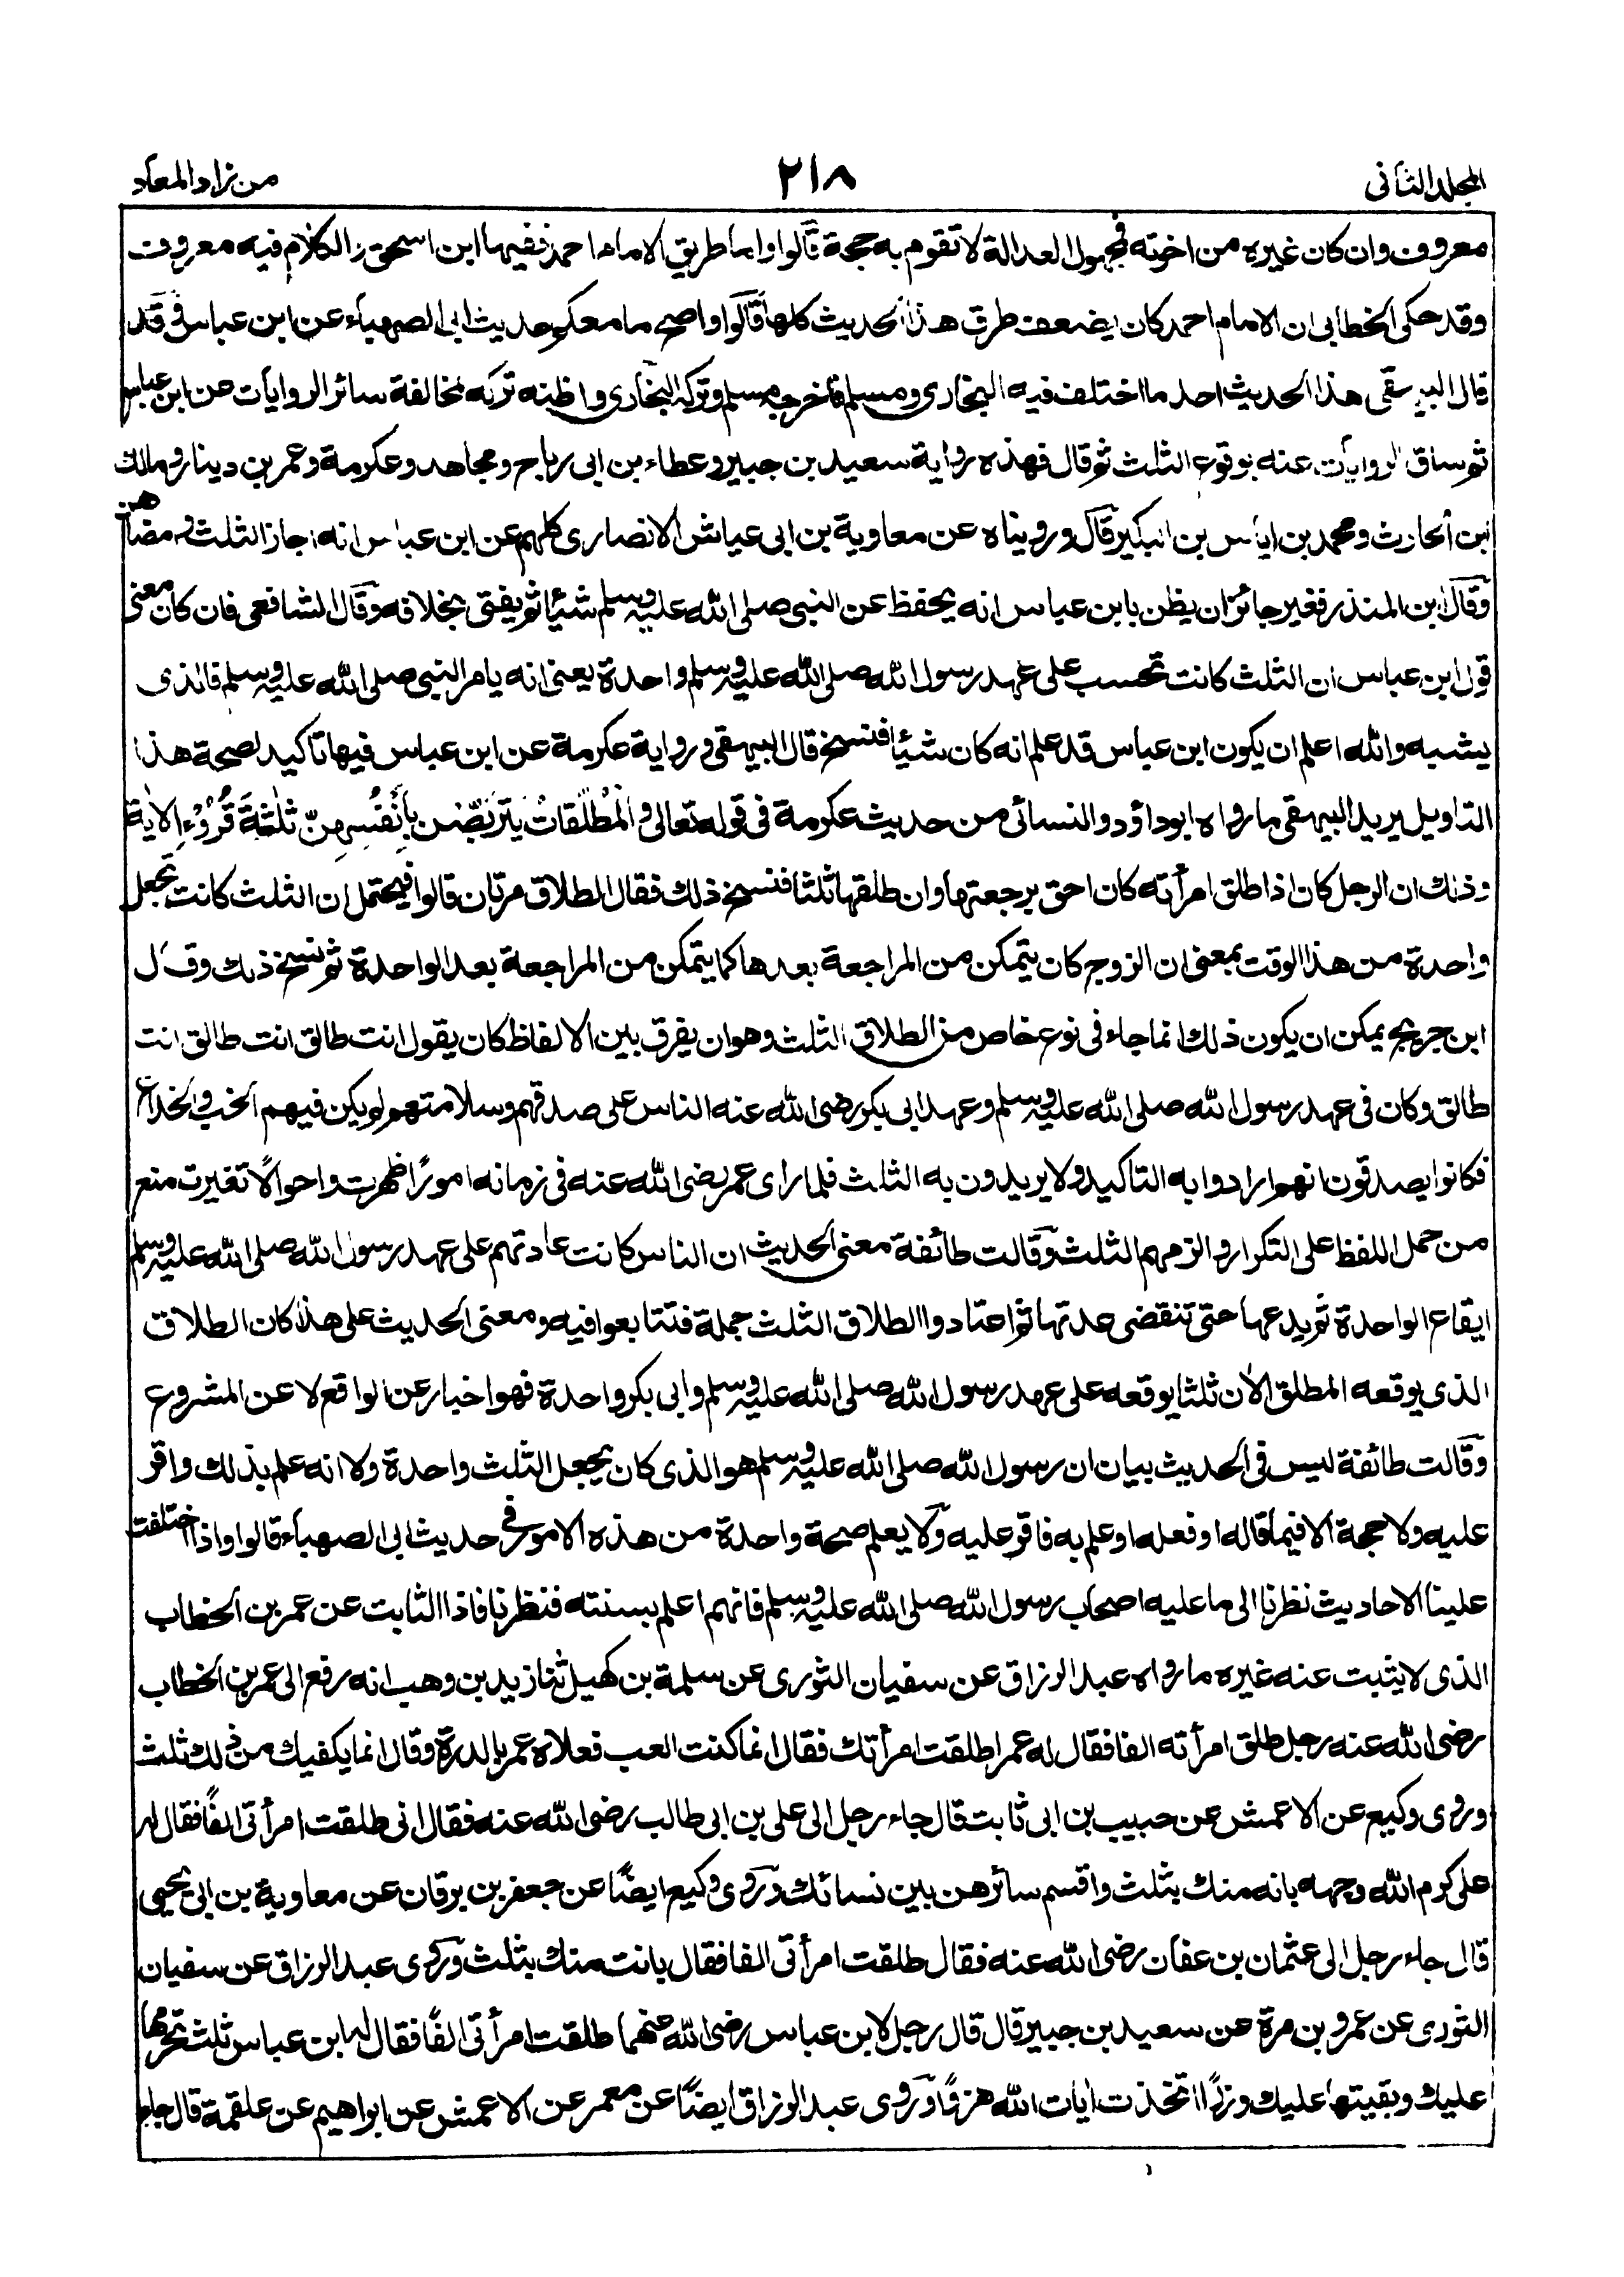 المجلد الثانى
٢١٨
من زاد المعاد
معروف وان كان غيره من اخوته فمجهول العدالة لا تقوم به حجة قالوا واما طريق الامام احمد ففيها ابن اسحق والكلام فيه معروف
وقد حكى الخطابى ان الامام احمد كان يضعف طرق هذا الحديث كلها قالوا واصح ما معكم حديث ابى الصهباء عن ابن عباس وقد
قال البيهقى هذا الحديث احد ما اختلف فيه البخارى ومسلم فاخرجه مسلم وتركه البخارى واظنه تركه لمخالفة سائر الروايات عن ابن عباس
ثم ساق الروايات عنه بوقوع الثلث ثم قال فهذه رواية سعيد بن جبير وعطاء بن ابى رباح ومجاهد وعكرمة وعمر بن دينار ومالك
ابن الحارث ومحمد بن اياس بن البكير قال ورويناه عن معاوية بن ابى عياش الانصارى كلهم عن ابن عباس انه اجاز الثلث وامضاهن
وقال ابن المنذر فغير جائز ان يظن بابن عباس انه يحفظ عن النبى صلى الله عليه وسلم شيئا ثم يفتى بخلافه وقال الشافعى فان كان معنى
قول ابن عباس ان الثلث كانت تحسب على عهد رسول الله صلى الله عليه وسلم واحدة يعنى انه يامر النبى صلى الله عليه وسلم فالذى
يشبه والله اعلم ان يكون ابن عباس قد علم انه كان شيئا فنسخ قال البيهقى ورواية عكرمة عن ابن عباس فيها تاكيد لصحة هذا
التاويل يريد البيهقى ما رواه ابو داؤد والنسائى من حديث عكرمة فى قوله تعالى وَالْمُطَلَّقَاتُ يَتَرَبَّصْنَ بِأَنْفُسِهِنَّ ثَلٰثَةَ قُرُوْءٍ الاٰية
وذلك ان الرجل كان اذا طلق امرأته كان احق برجعتها وان طلقها ثلثا فنسخ ذلك فقال الطلاق مرتان قالوا فيحتمل ان الثلث كانت تجعل
واحدة من هذا الوقت بمعنى ان الزوج كان يتمكن من المراجعة بعدها كما يتمكن من المراجعة بعد الواحدة ثم نسخ ذلك وقال
ابن جريج يمكن ان يكون ذلك انما جاء فى نوع خاص من الطلاق الثلث وهو ان يفرق بين الالفاظ كان يقول انت طالق انت طالق انت
طالق وكان فى عهد رسول الله صلى الله عليه وسلم وعهد ابى بكر رضى الله عنه الناس على صدقهم وسلامتهم لم يكن فيهم الخب والخداع
فكانوا يصدقون انهم ارادوا به التاكيد ولا يريدون به الثلث فلما راى عمر رضى الله عنه فى زمانه امورًا ظهرت واحوالًا تغيرت منع
من حمل اللفظ على التكرار والزمهم الثلث وقالت طائفة معنى الحديث ان الناس كانت عادتهم على عهد رسول الله صلى الله عليه وسلم
ايقاع الواحدة ثم يدعها حتى تنقضى عدتها ثم اعتادوا الطلاق الثلث جملة فتتابعوا فيه ومعنى الحديث على هذا كان الطلاق
الذى يوقعه المطلق الاٰن ثلثا يوقعه على عهد رسول الله صلى الله عليه وسلم وابى بكر واحدة فهو اخبار عن الواقع لا عن المشروع
وقالت طائفة ليس فى الحديث بيان ان رسول الله صلى الله عليه وسلم هو الذى كان يجعل الثلث واحدة ولا انه علم بذلك واقر
عليه ولا حجة الا فيما قاله او فعله او علم به فاقر عليه ولا يعلم صحة واحدة من هذه الامور فى حديث ابى الصهباء قالوا واذا اختلفت
علينا الاحاديث نظرنا الى ما عليه اصحاب رسول الله صلى الله عليه وسلم فانهم اعلم بسنته فنظرنا فاذا الثابت عن عمر بن الخطاب
الذى لا يثبت عنه غيره ما رواه عبد الرزاق عن سفيان الثورى عن سلمة بن كهيل ثنا زيد بن وهب انه رفع الى عمر بن الخطاب
رضى الله عنه رجل طلق امرأته الفا فقال له عمر اطلقت امرأتك فقال انما كنت العب فعلاه عمر بالدرة وقال انما يكفيك من ذلك ثلث
وروى وكيع عن الاعمش عن حبيب بن ابى ثابت قال جاء رجل الى على بن ابى طالب رضى الله عنه فقال انى طلقت امرأتى الفًا فقال له
على كرم الله وجهه بانه منك بثلث واقسم سائرهن بين نسائك وروى وكيع ايضًا عن جعفر بن برقان عن معاوية بن ابى يحيى
قال جاء رجل الى عثمان بن عفان رضى الله عنه فقال طلقت امرأتى الفا فقال بانت منك بثلث وروى عبد الرزاق عن سفيان
الثورى عن عمرو بن مرة عن سعيد بن جبير قال قال رجل لابن عباس رضى الله عنهما طلقت امرأتى الفًا فقال له ابن عباس ثلث تحرمها
عليك وبقيتها عليك وزرًا اتخذت اٰيات الله هزوًا وروى عبد الرزاق ايضًا عن معمر عن الاعمش عن ابراهيم عن علقمة قال جاء